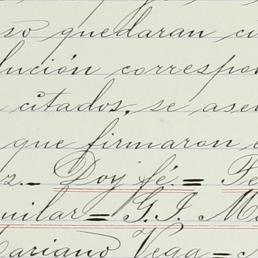 so quedaran cu
lución correspon
citados, se ase
que firmaron e
z.— Doy fé.= Fe
uilar= G. I. M
Mariano Vega=